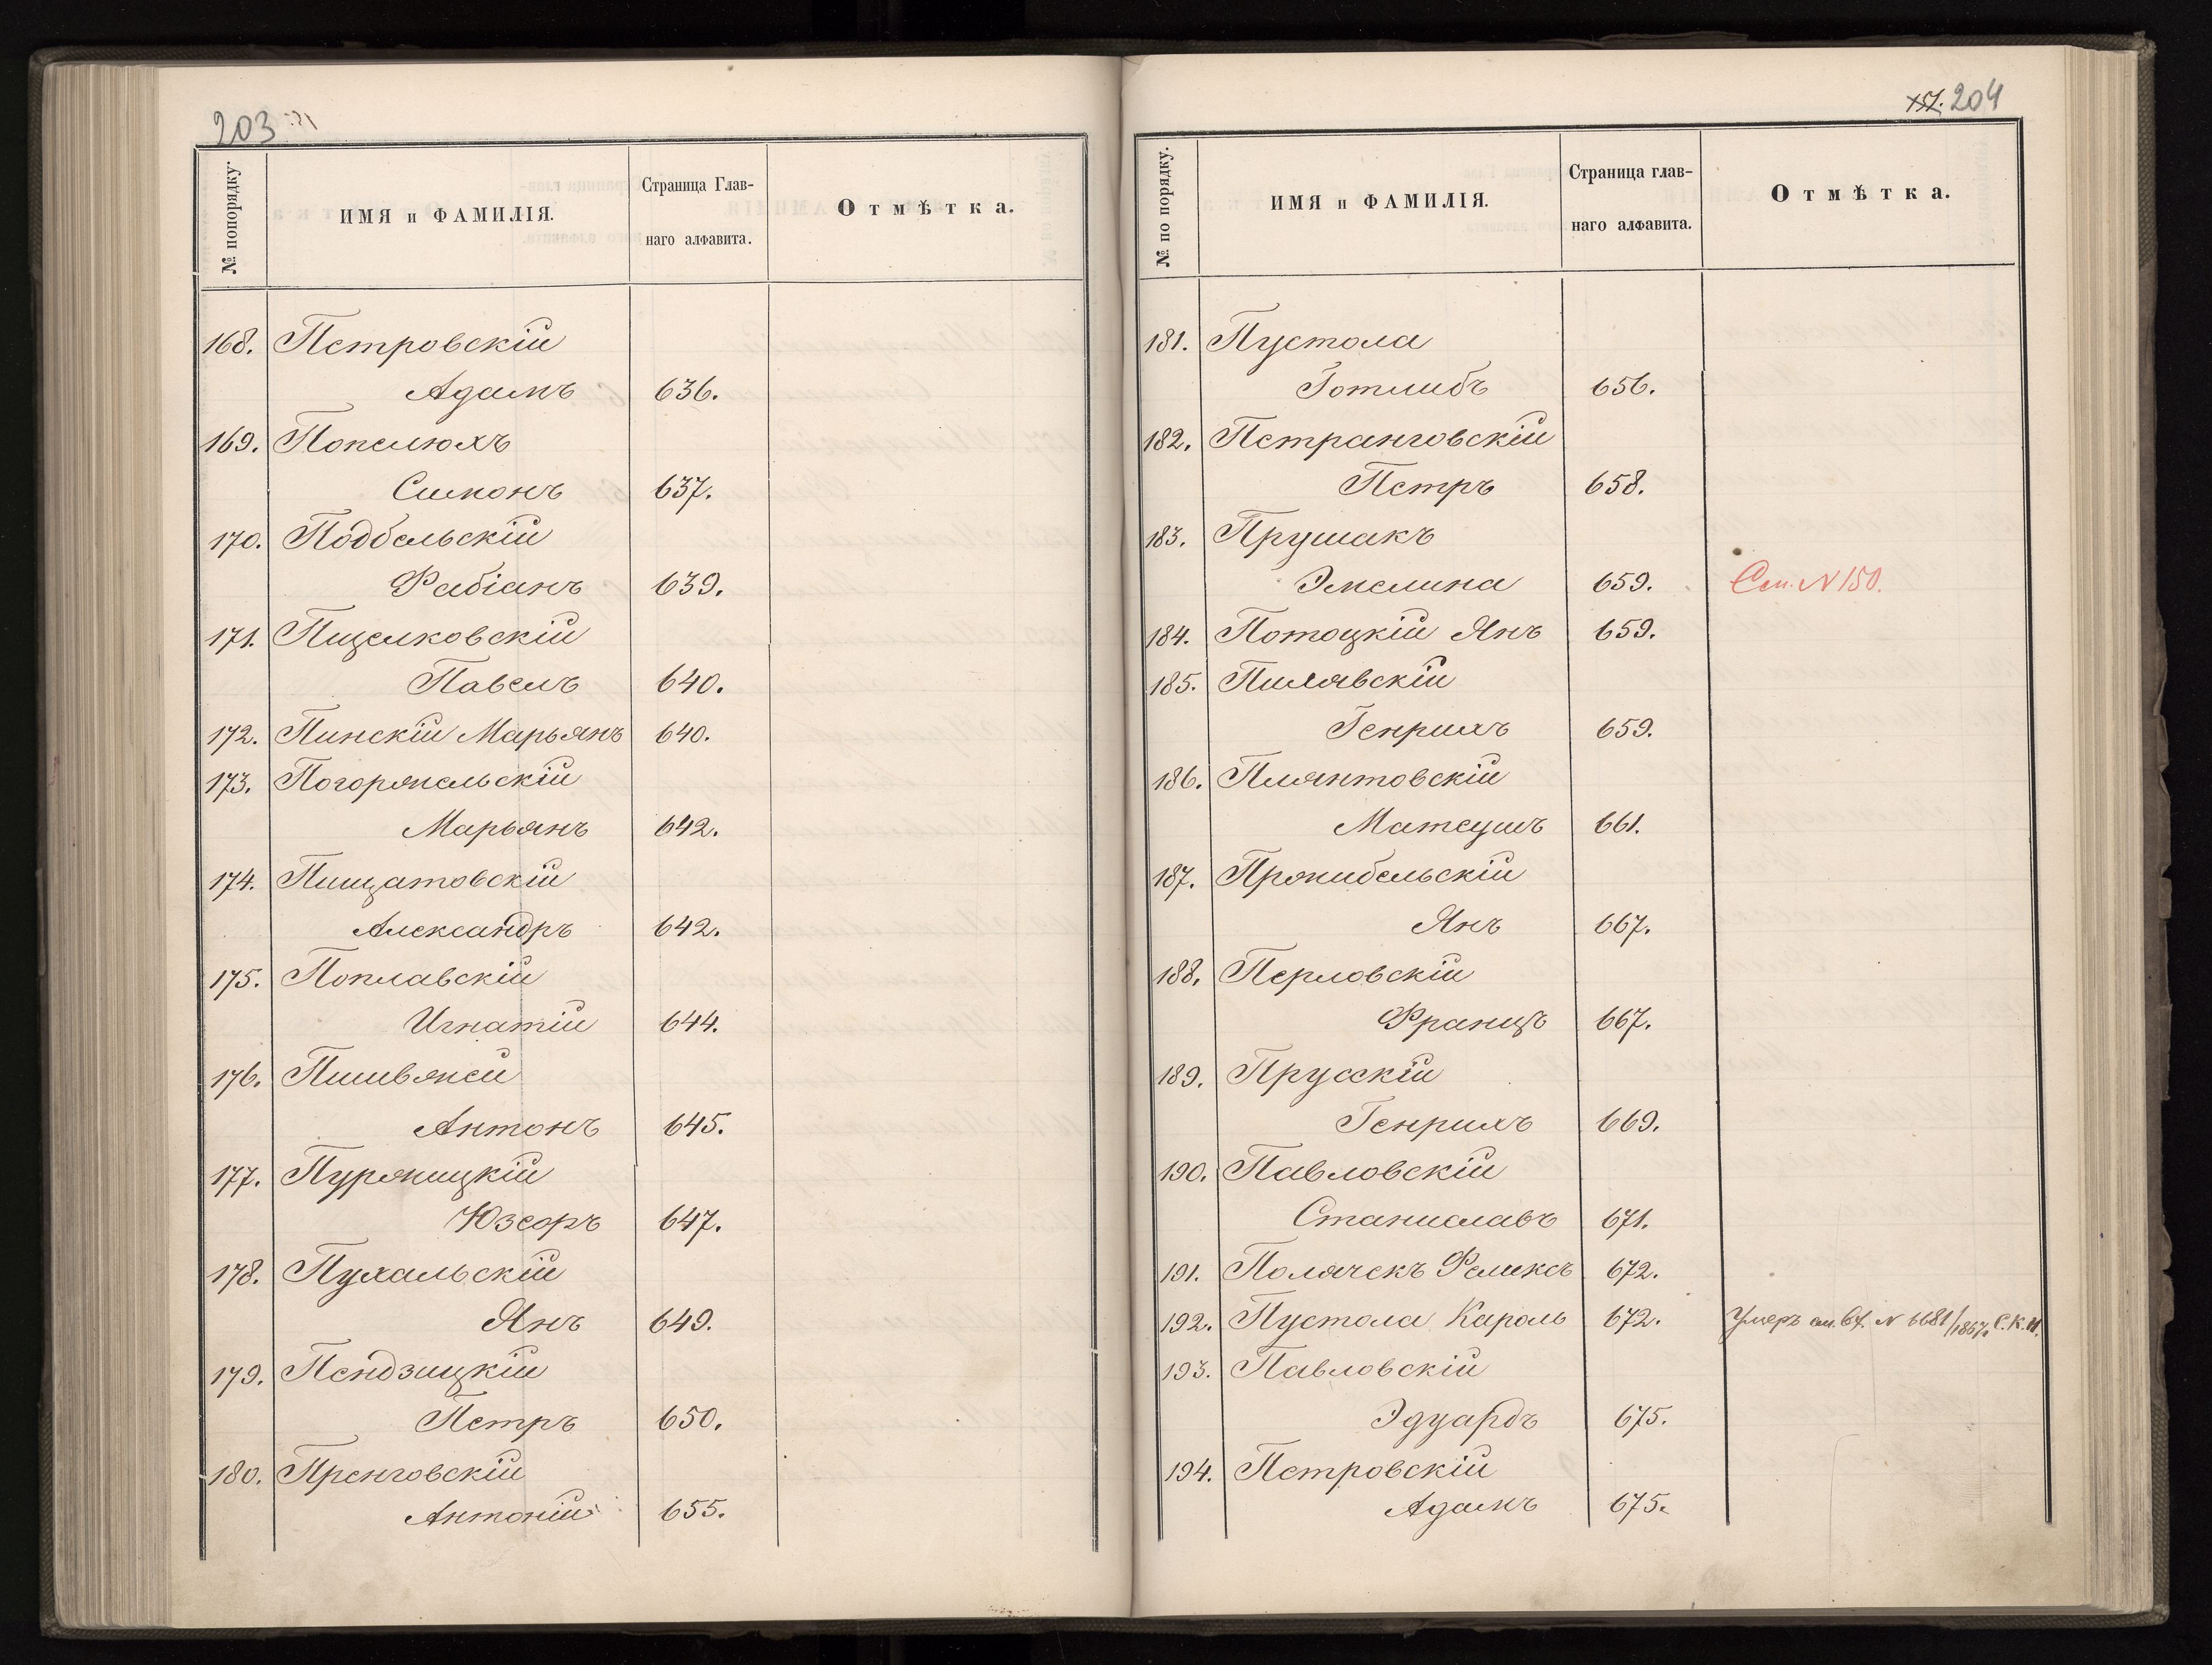 203
№ попорядку.
ИМЯ и ФАМИЛІЯ.
Страница Глав-
наго алфавита.
Отмѣтка.
168. Петровскій
Адамъ 636.
169. Попелюхъ
Симонъ 637.
170. Подбельскій
Фабіанъ 639.
171. Пщелковскій
Павелъ 640.
172. Пинскій Марьянъ 640.
173. Погоржельскій
Марьянъ 642.
174. Пищатовскій
Александръ 642.
175. Поплавскій
Игнатій 644.
176.
Антонъ 645.
177. Пуржицкій
Юзефъ 647.
178. Пухальскій
Янъ 649.
179. Пендзицкій
Петръ 650.
180. Пренговскій
Антоній 655.
204
№ по порядку.
ИМЯ и ФАМИЛІЯ.
Страница глав-
наго алфавита.
Отмѣтка.
181. Пустола
Готлибъ 656.
182. Петранговскій
Петръ 658.
183. Прушакъ
Эмелина 659. См. N 150.
184. Потоцкій Янъ 659.
185. Пилявскій
Генрихъ 659.
186. Плянтовскій
Матеушъ 661.
187. Пржибельскій
Янъ 667.
188. Перловскій
Францъ 667.
189. Прусскій
Генрихъ 669.
190. Павловскій
Станиславъ 671.
191. Полячекъ Феликсъ 672.
192. Пустола Кароль 672. Умеръ см. вх. N 6681/1867. С.К.И.
193. Павловскій
Эдуардъ 675.
194. Петровскій
Адамъ 675.